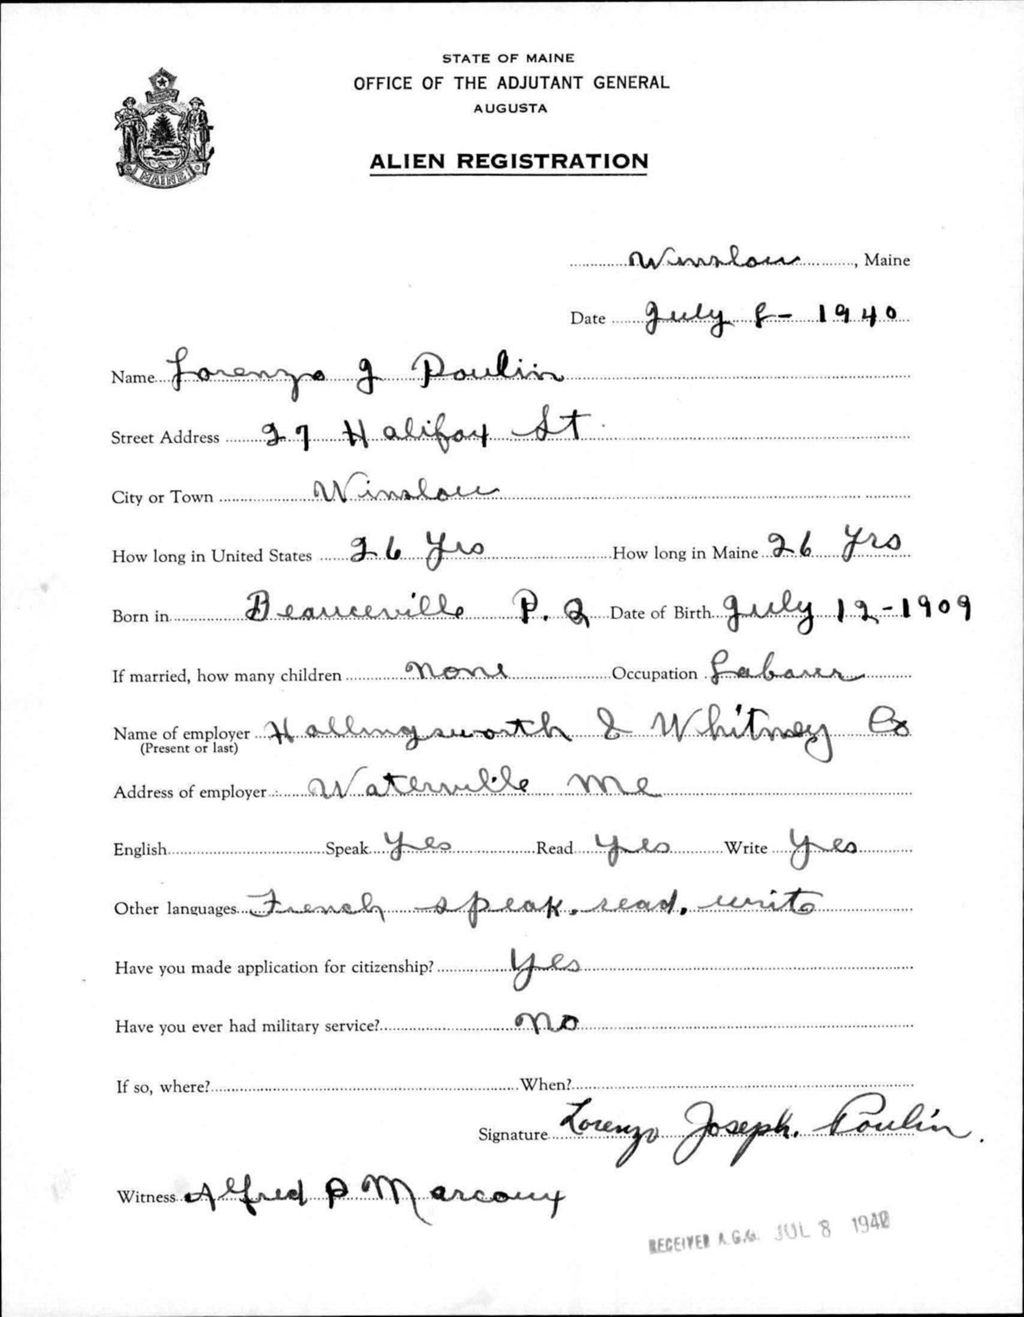 STATE OF MAINE
OFFICE OF THE ADJUTANT GENERAL
AUGUSTA
ALIEN REGISTRATION
MAINE
Winslow, Maine
Date July 8- 1940
Name Lorenzo J Poulin
Street Address 27 Halifax St
City or Town Winslow
How long in United States 26 Yrs How long in Maine 26 Yrs
Born in Beauceville P. Q Date of Birth July 12-1909
If married, how many children None Occupation Laborer
Name of employer Hollingsworth & Whitney Co
(Present or last)
Address of employer Waterville Me
English Speak Yes Read Yes Write Yes
Other languages French speak. read. write
Have you made application for citizenship? Yes
Have you ever had military service? No
If so, where? When?
Signature Lorenzo Joseph. Poulin.
Witness Alfred P Marcoux
RECEIVED A.G.O. JUL 8 1940